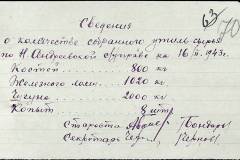 63
70
Сведения
о количестве собранного утиль-сырья
по Н Андреевской общине на 16/II. 1943г.
Костей 800 кг
Железного лома 1020 кг
Чугуна 2000 кг
Копыт 8 штук
Староста Бондарь
Секретарь